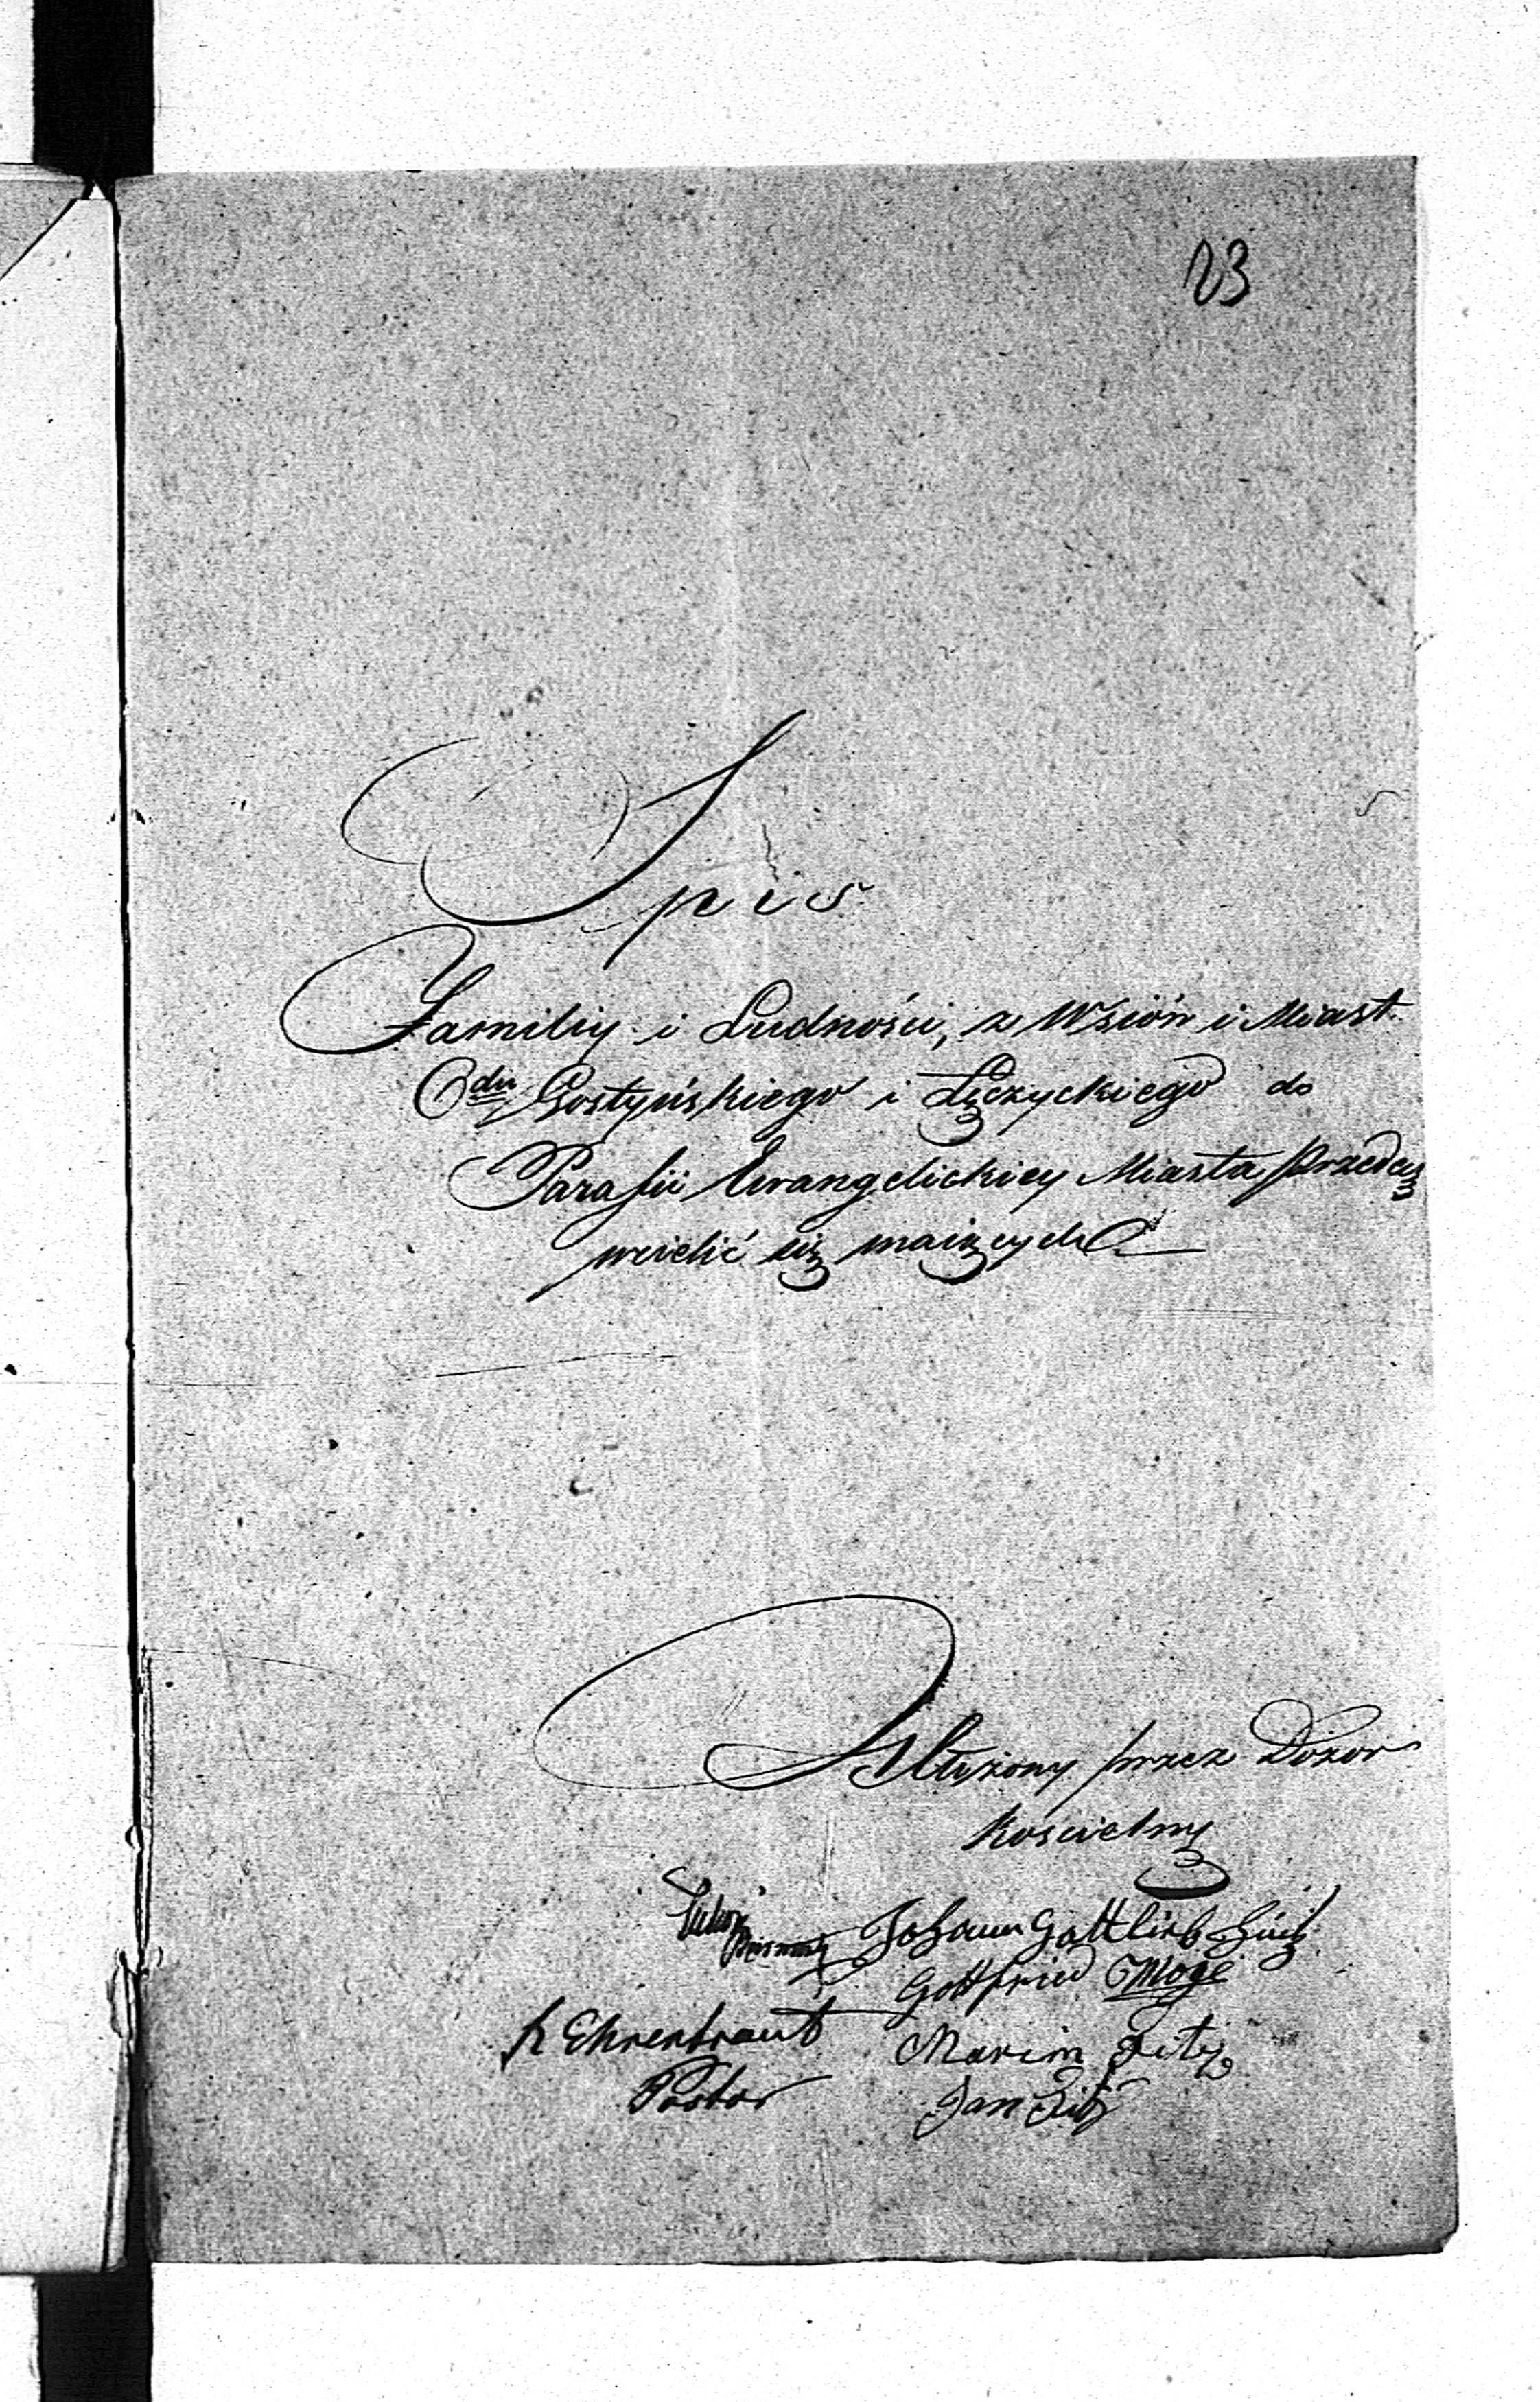 23
Spis
Familiy i Ludności, z Wsiów i Miast
Odu Gostyńskiego i Łęczyckiego do
Parafii Ewangelickiey Miasta Przedecz
wcielić się maiących
Ułożony przez Dozor
Kościelny
Johann Gottlieb
Gottfried Moge
R Ehrentraut Marcin
Pastor Jan